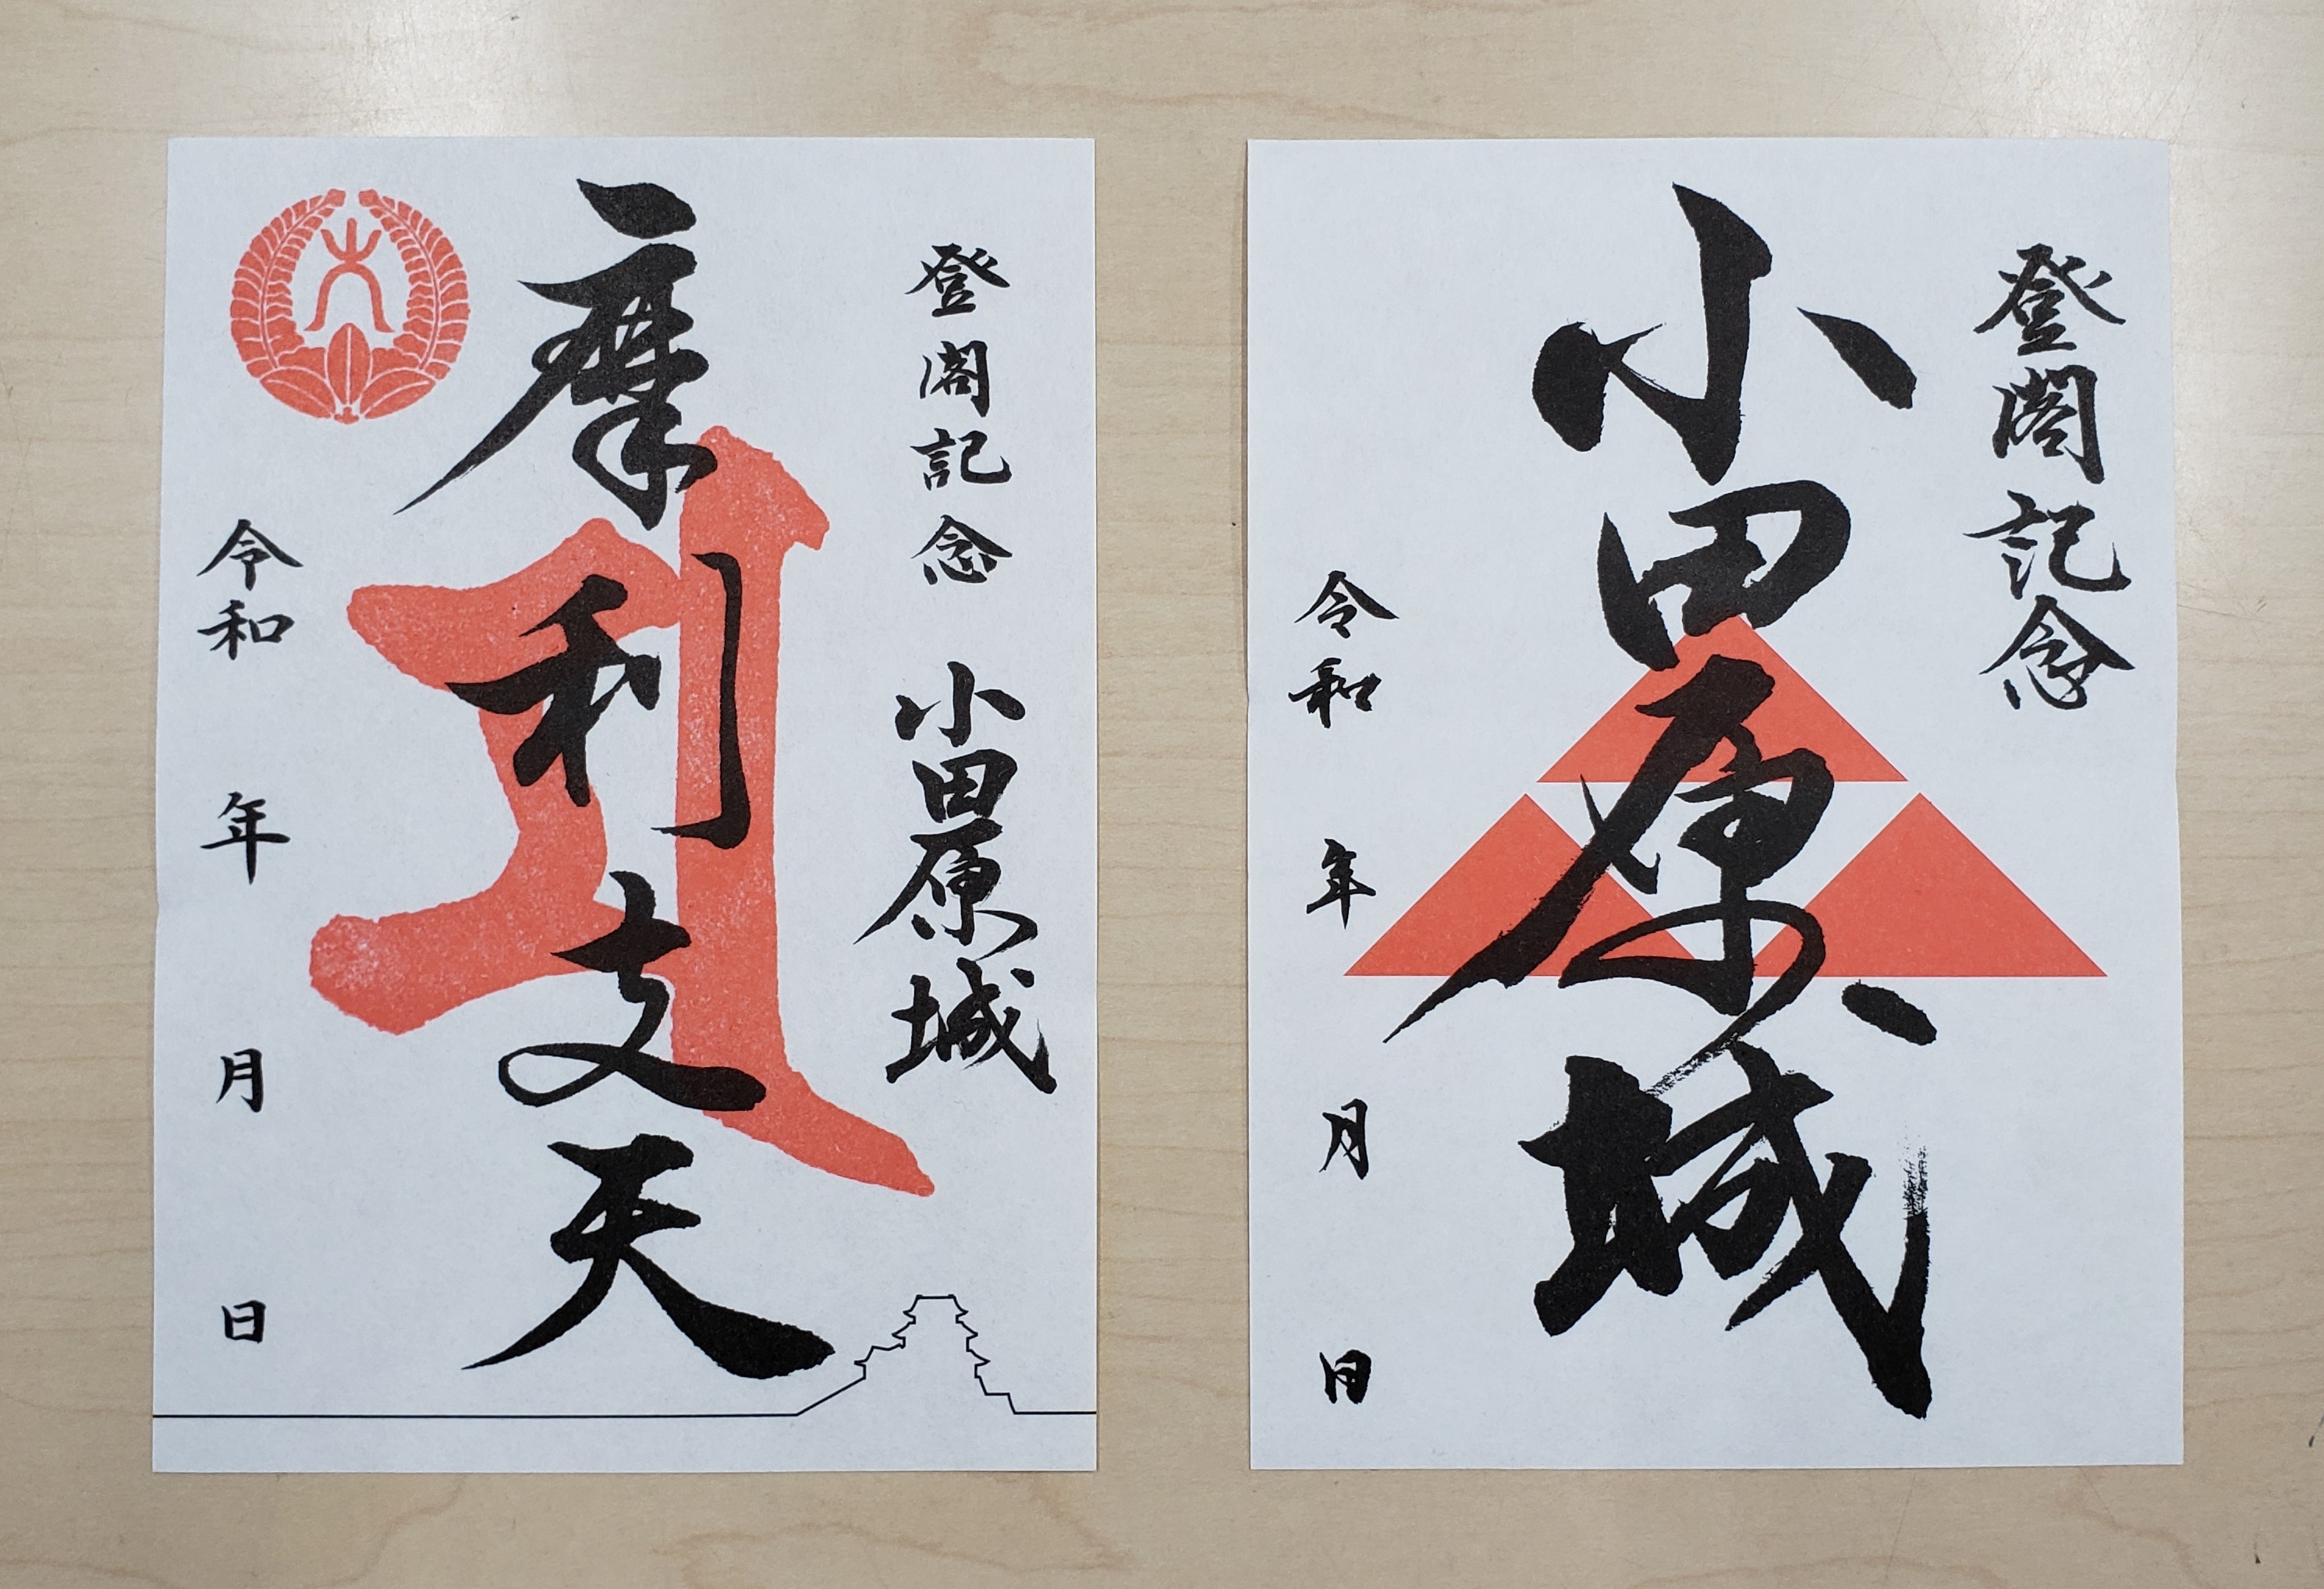 登閣記念 小田原城
摩利支天
令和 年 月 日
登閣記念
小田原城
令和 年 月 日